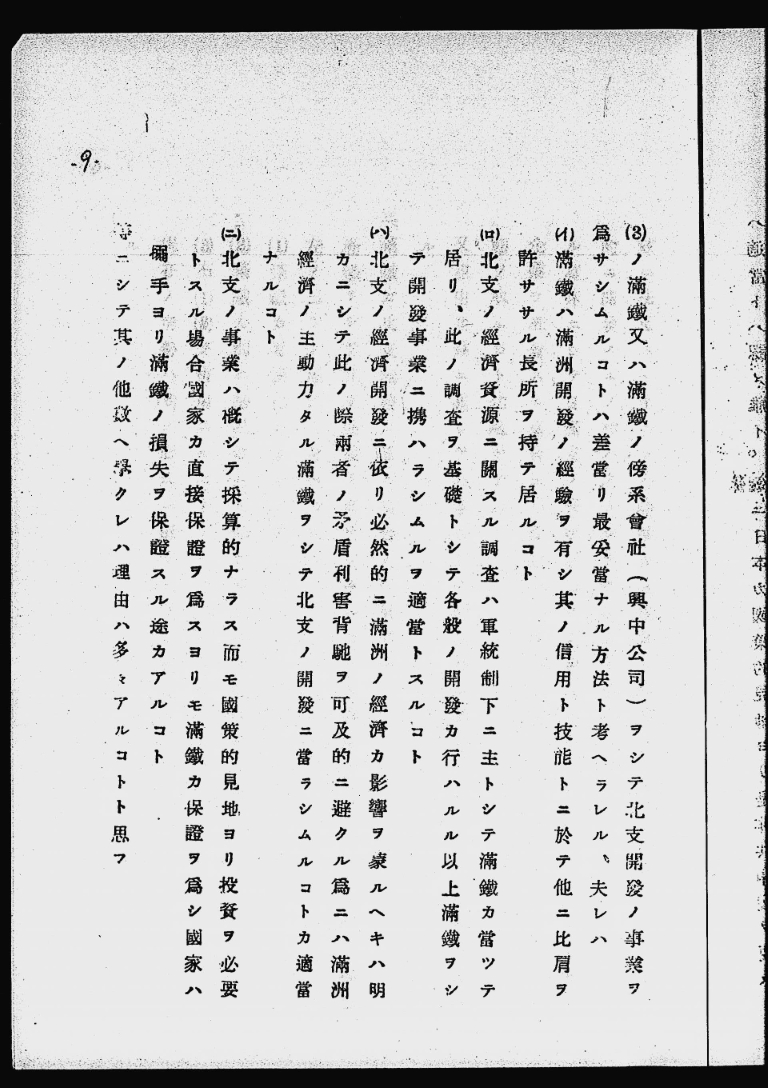 (3)ノ滿鐵又ハ滿鐵ノ傍系會社(興中公司)ヲシテ北支開發ノ事業ヲ
爲サシムルコトハ差當リ最妥當ナル方法ト考ヘラレル、夫レハ
(イ)滿鐵ハ滿洲開發ノ經驗ヲ有シ其ノ信用ト技能トニ於テ他ニ比肩ヲ
許ササル長所ヲ持テ居ルコト
(ロ)北支ノ經濟資源ニ關スル調査ハ軍統制下ニ主トシテ滿鐵カ當ツテ
居リ、此ノ調査ヲ基礎トシテ各般ノ開發カ行ハルル以上滿鐵ヲシ
テ開發事業ニ携ハラシムルヲ適當トスルコト
(ハ)北支ノ經濟開發ニ依リ必然的ニ滿洲ノ經濟カ影響ヲ蒙ルヘキハ明
カニシテ此ノ際兩者ノ矛盾利害背馳ヲ可及的ニ避クル爲ニハ滿洲
經濟ノ主動力タル滿鐵ヲシテ北支ノ開發ニ當ラシムルコトカ適當
ナルコト
(ニ)北支ノ事業ハ概シテ採算的ナラス而モ國策的見地ヨリ投資ヲ必要
トスル場合國家カ直接保證ヲ爲スヨリモ滿鐵カ保證ヲ爲シ國家ハ
手ヨリ滿鐵ノ損失ヲ保證スル途カアルコト
等ニシテ其ノ他數ヘ擧クレハ理由ハ多々アルコトト思フ
-9-